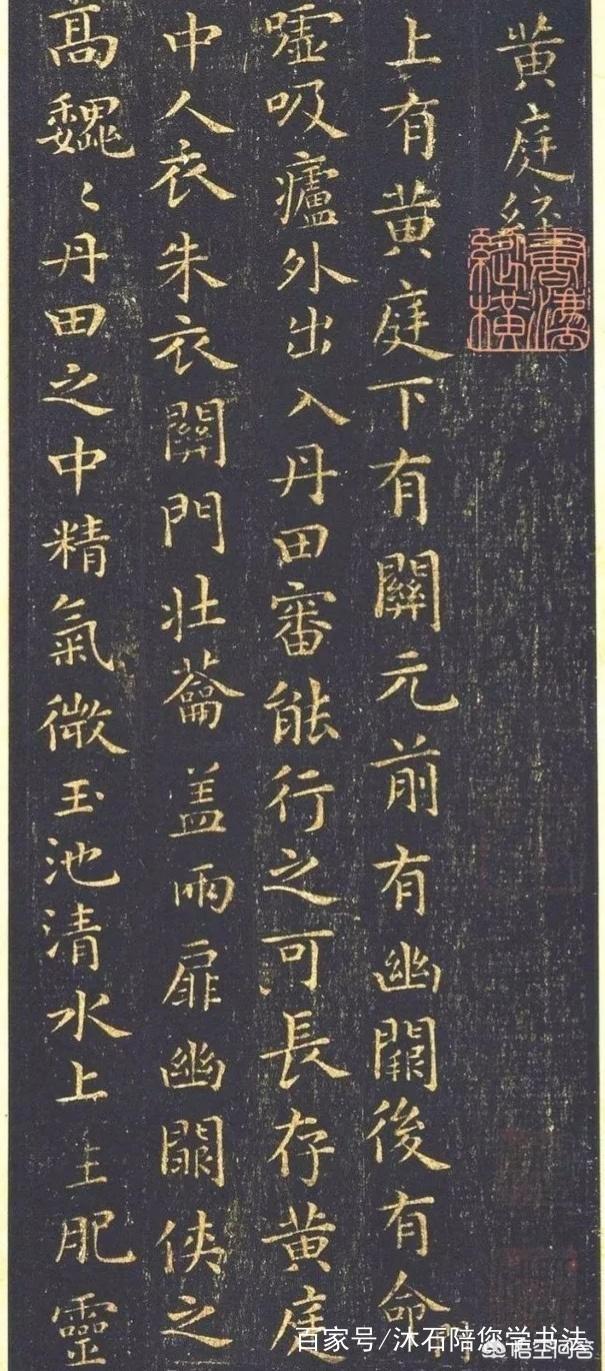 黄庭經
上有黄庭下有關元前有幽闕後有命門
嘘吸廬外出入丹田審能行之可長存黄庭
中人衣朱衣關門壯蘥盖兩扉幽闕俠之
高巍〻丹田之中精氣微玉池清水上生肥靈
百家号/沐石陪您学书法
悟空问答